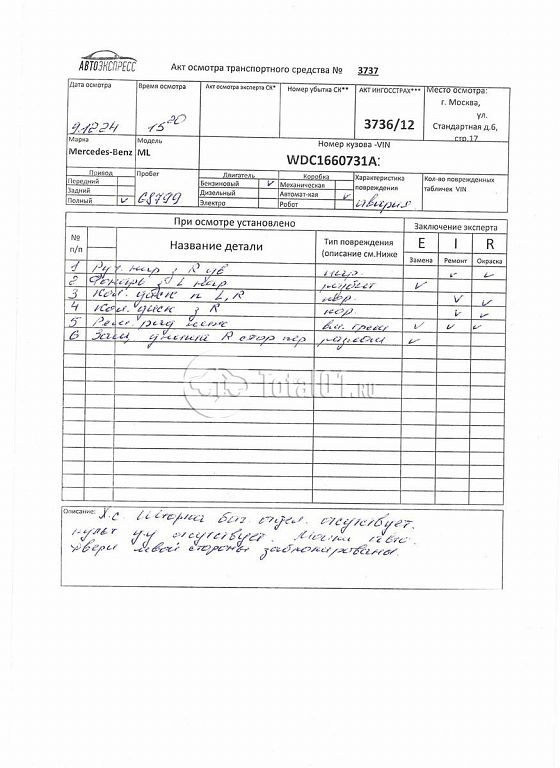 АВТОЭКСПРЕСС
Акт осмотра транспортного средства № 3737
Дата осмотра Время осмотра Акт осмотра эксперта СК* Номер убытка СК** АКТ ИНГОССТРАХ*** Место осмотра:
г. Москва,
ул.
9.12.24 15 20 3736/12 Стандартная д.6,
стр.17
Марка Модель Номер кузова -VIN
Mercedes-Benz ML WDC1660731A:
Привод Пробег Двигатель Коробка Характеристика повреждения Кол-во поврежденных табличек VIN
Передний Бензиновый v Механическая
Задний 68799 Дизельный Автомат-кая v
Полный v Электро Робот авария
При осмотре установлено Заключение эксперта
№ п/п Название детали Тип повреждения (описание см.Ниже E I R
Замена Ремонт Окраска
1 Руч нар з R цв цар. v v
2 Фонарь з L нар разбит v
3 Кол. диск п L, R цар. v v
4 Кол. диск з R цар. v v
5 v v v
6 R v
Total01.ru
Описание: Х.с. Шторка баг. отдел. отсутствует.
пульт ду отсутствует.
двери левой стороны заблокированы.